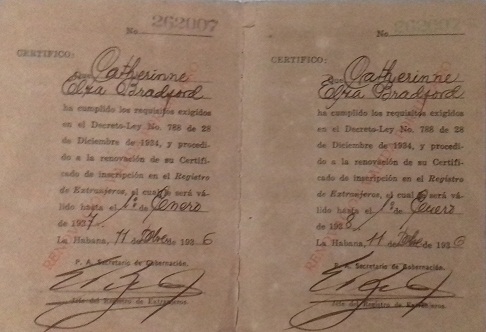 No 262007
CERTIFICO:
Que Catherinne
Elza Bradford
ha cumplido los requisitos exigidos
en el Decreto-Ley No. 788 de 28
de Diciembre de 1934, y procedi-
do a la renovación de su Certifi-
cado de inscripción en el Registro
de Extranjeros, el cual será vá-
lido hasta el 1º de Enero
de 1937
La Habana, 11 de 1936
P. A. Secretario de Gobernación.
Jefe del Registro de Extranjeros.
No 262007
CERTIFICO:
Que Catherinne
Elza Bradford
ha cumplido los requisitos exigidos
en el Decreto-Ley No. 788 de 28
de Diciembre de 1934, y procedi-
do a la renovación de su Certifi-
cado de inscripción en el Registro
de Extranjeros, el cual será vá-
lido hasta el 1º de Enero
de 1938
La Habana, 11 de 1936
P. A. Secretario de Gobernación.
Jefe del Registro de Extranjeros.